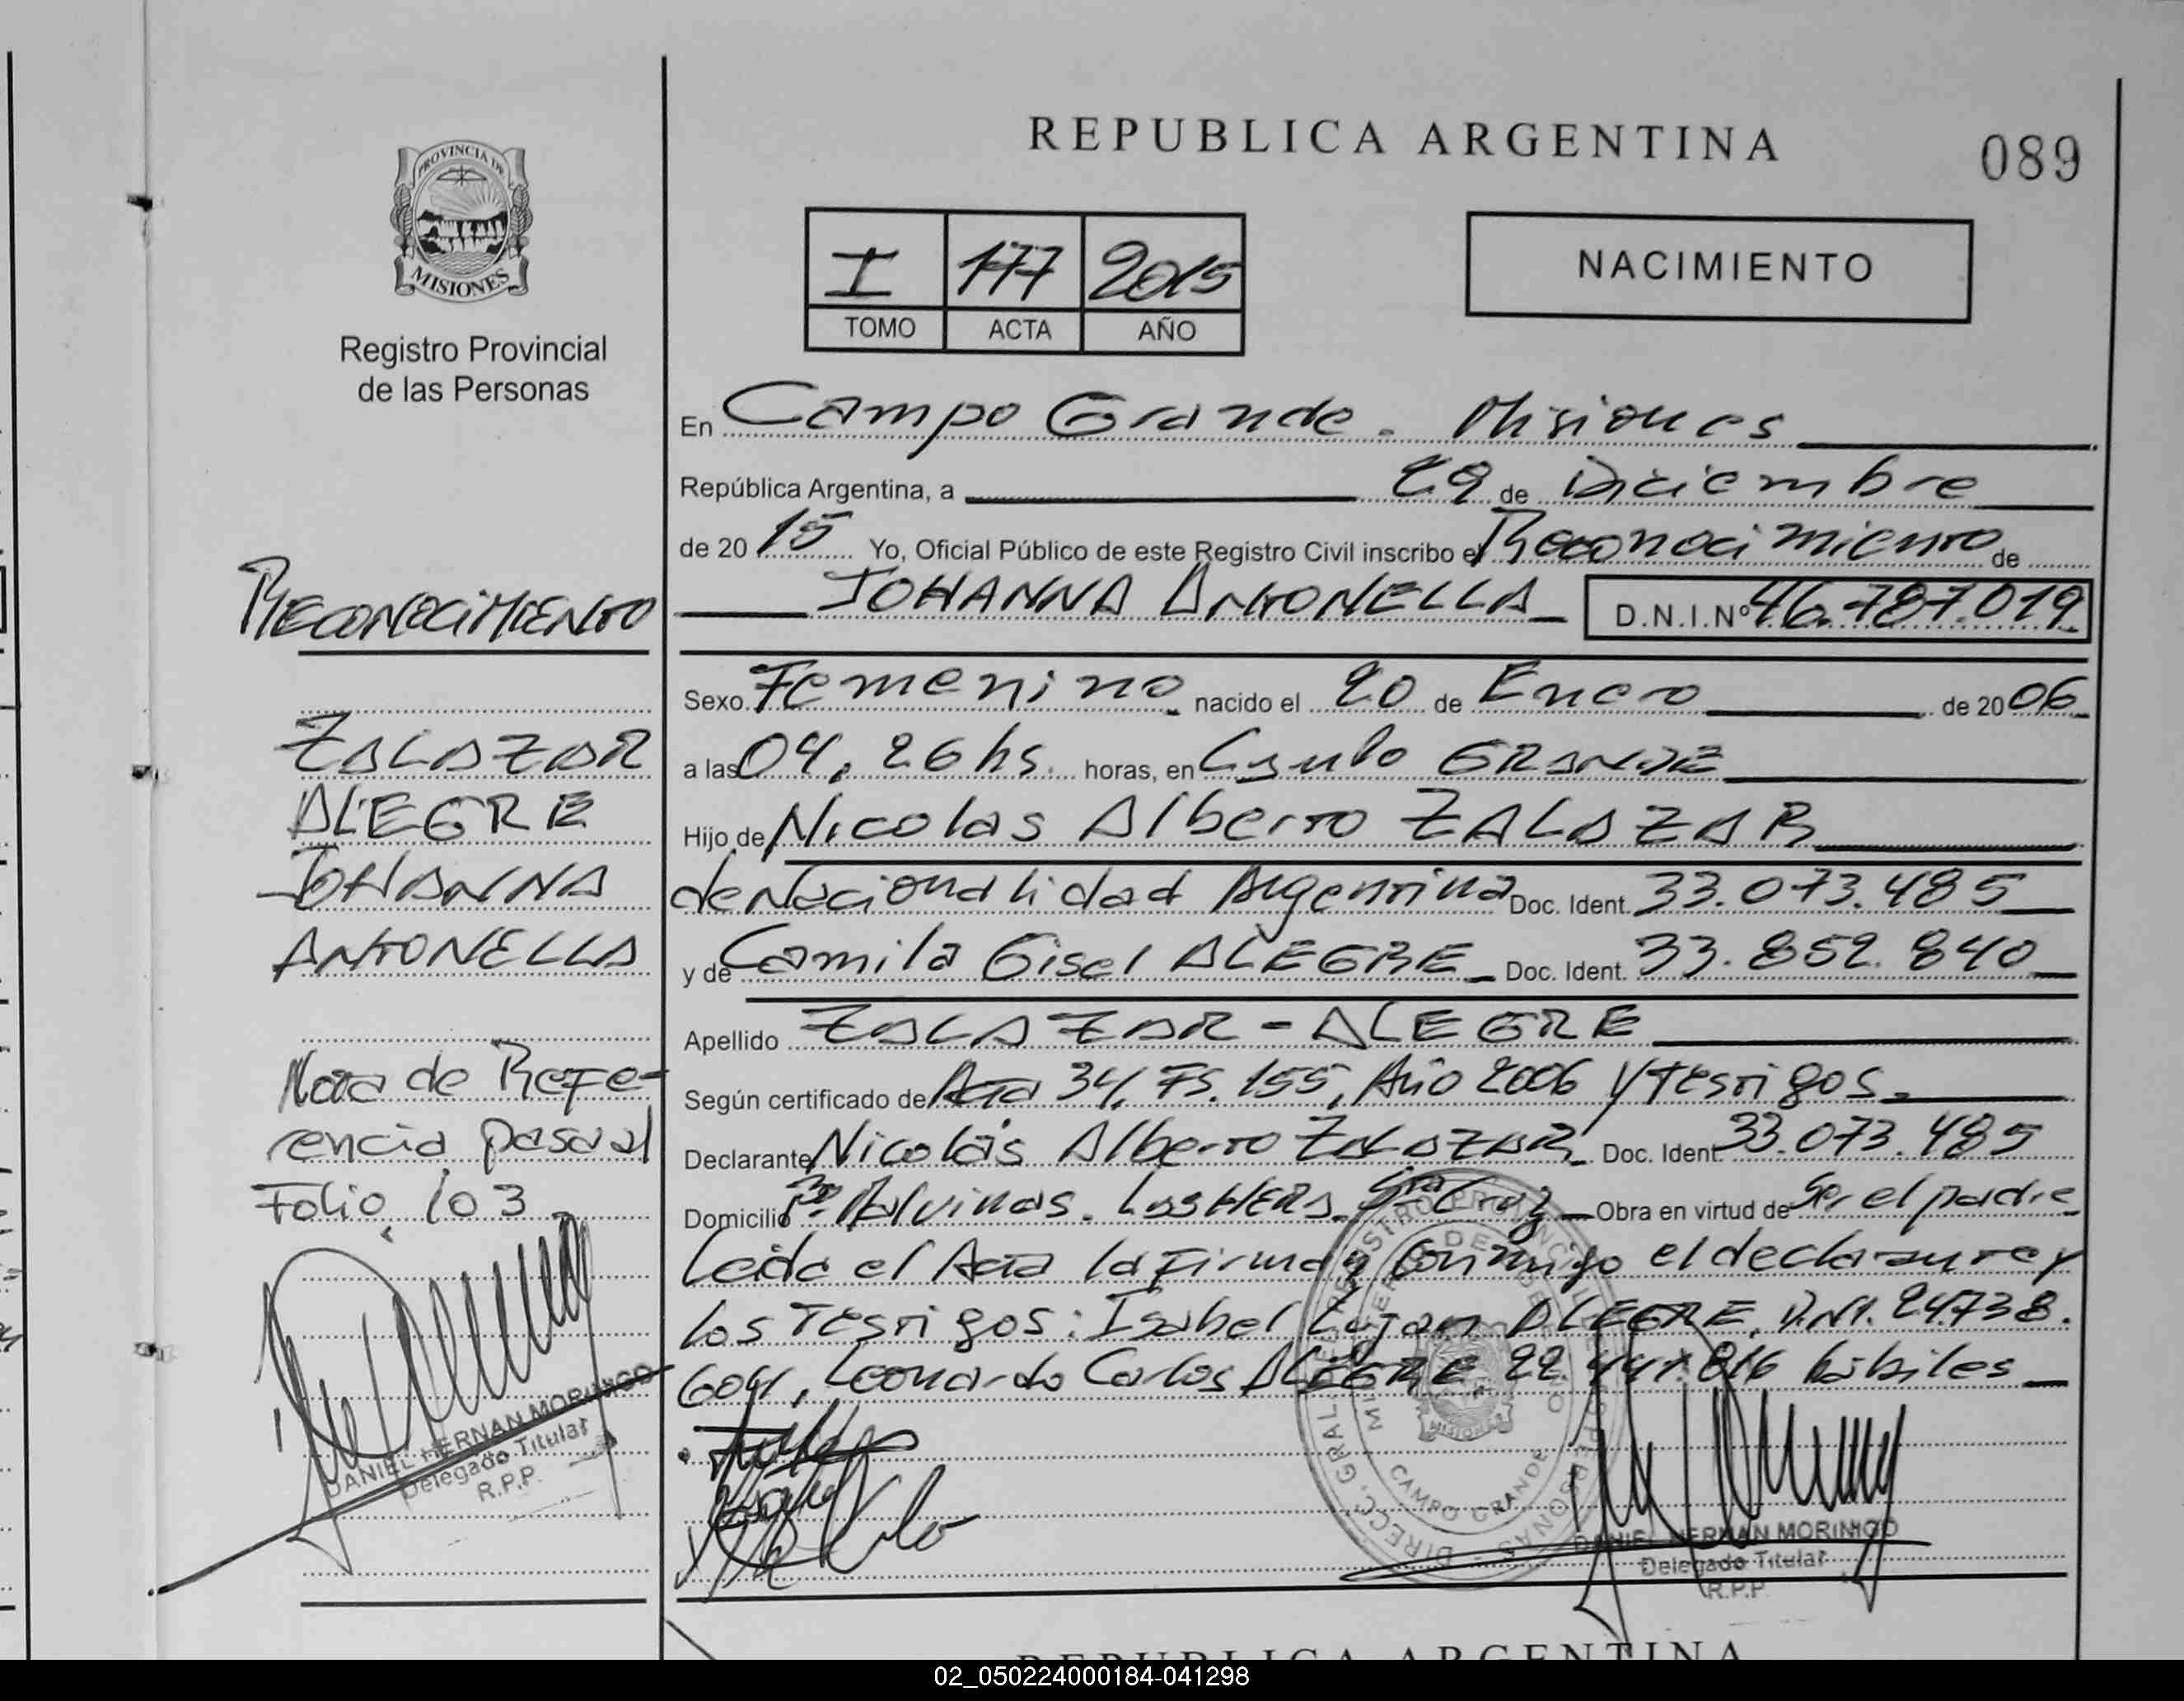 REPUBLICA ARGENTINA
089
PROVINCIA DE
MISIONES
Registro Provincial
de las Personas
I 177 2015
TOMO ACTA AÑO
NACIMIENTO
En Campo Grande. Misiones
República Argentina, a 29 de Diciembre
de 20 15 Yo, Oficial Público de este Registro Civil inscribo el Reconocimiento de
JOHANNA ANTONELLA D.N.I.Nº 46.787.019
Sexo Femenino nacido el 20 de Enero de 20 06
a las 04,26 hs. horas, en GRANDE
Hijo de Nicolas Alberto ZALAZAR
de Nacionalidad Argentina Doc. Ident. 33.073.485
y de Camila Gisel ALEGRE Doc. Ident. 33.852.840
Apellido ZALAZAR - ALEGRE
Según certificado de Acta 34, Fs. 155, Año 2006 y testigos
Declarante Nicolás Alberto ZALAZAR Doc. Ident. 33.073.485
Domicilio Malvinas. Las HERAS Sta Cruz Obra en virtud de Ser el padre
Leida el Acta la firman conmigo el declarante y
los Testigos: Isabel Lujan ALEGRE, D.N.I. 24.738.
604, Leonardo Carlos ALEGRE 22.441.816 hábiles
RECONOCIMIENTO
ZALAZAR
ALEGRE
JOHANNA
ANTONELLA
Nota de Refe-
rencia pasa al
Folio 103
DANIEL HERNAN MORINIGO
Delegado Titular
R.P.P.
CAMPO GRANDE
DANIEL HERNAN MORINIGO
Delegado Titular
R.P.P
REPUBLICA ARGENTINA
02_050224000184-041298